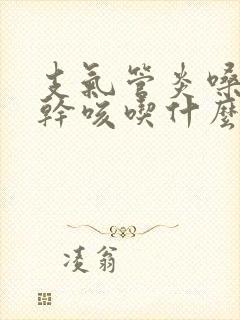 支氣管炎嗓
幹咳喫什麼
凌翁